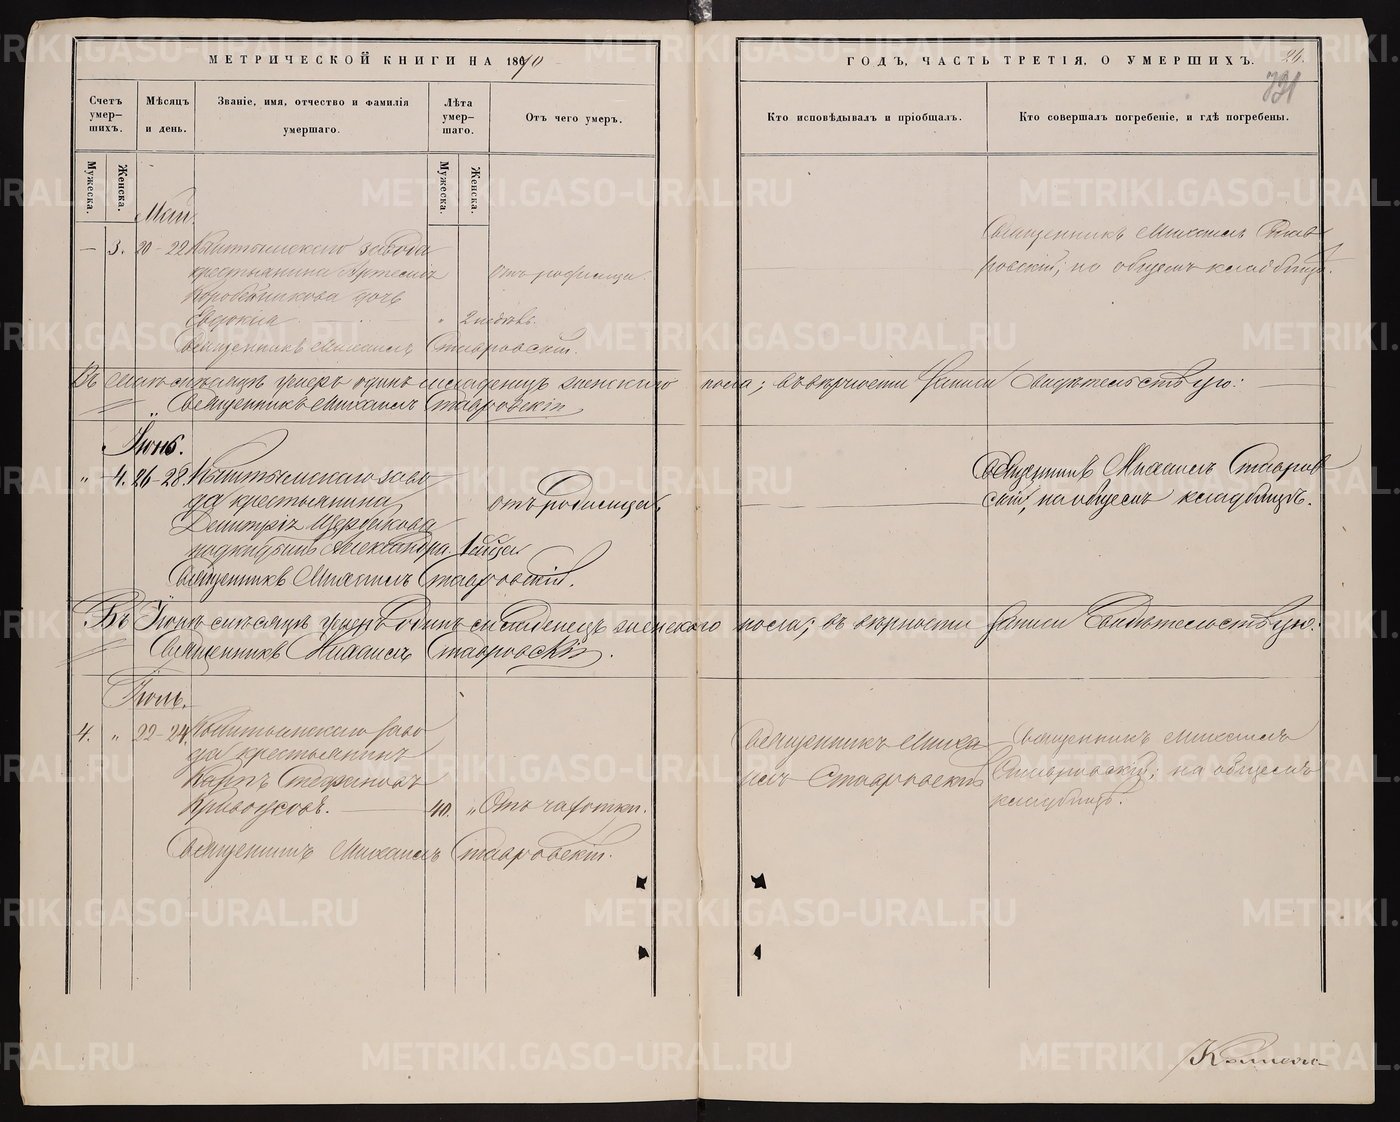 МЕТРИЧЕСКОЙ КНИГИ НА 1870
ГОДЪ, ЧАСТЬ ТРЕТІЯ, О УМЕРШИХЪ.
24.
731
Счетъ умер-
шихъ.
Мѣсяцъ
и день.
Званіе, имя, отчество и фамилія
умершаго.
Лѣта
умер-
шаго.
Отъ чего умеръ.
Кто исповѣдывалъ и пріобщалъ.
Кто совершалъ погребеніе, и гдѣ погребены.
Мужеска.
Женска.
Мужеска.
Женска.
Май.
— 3. 20-22 Кыштымскаго завода
крестьянина Артемія
Коробейникова дочь
Евдокія
2 недѣль.
отъ родимца.
Священникъ Михаилъ Став
ровскій; на общемъ кладбищѣ.
Священникъ Михаилъ Ставровскій.
Въ Маѣ мѣсяцѣ умеръ одинъ младенецъ женскаго пола; въ вѣрности записи свидѣтельствую:
Священникъ Михаилъ Ставровскій
Іюнь.
" 4. 26-28. Кыштымскаго заво
да крестьянина
Димитрія
подкидышъ Александра. 1 мѣсяца
отъ родимца,
Священникъ Михаилъ Ставров
скій, на общемъ кладбищѣ.
Священникъ Михаилъ Ставровскій.
Въ Іюнѣ мѣсяцѣ умеръ одинъ младенецъ женскаго пола; въ вѣрности записи свидѣтельствую:
Священникъ Михаилъ Ставровскій.
Іюль.
4. " 22-24. Кыштымскаго заво
да крестьянинъ
Карпъ Стефановъ
Кривоусовъ. 40. " Отъ чахотки.
Священникъ Миха
илъ Ставровскій
Священникъ Михаилъ
Ставровскій; на общемъ
кладбищѣ.
Священникъ Михаилъ Ставровскій.
METRIKI.GASO-URAL.RU